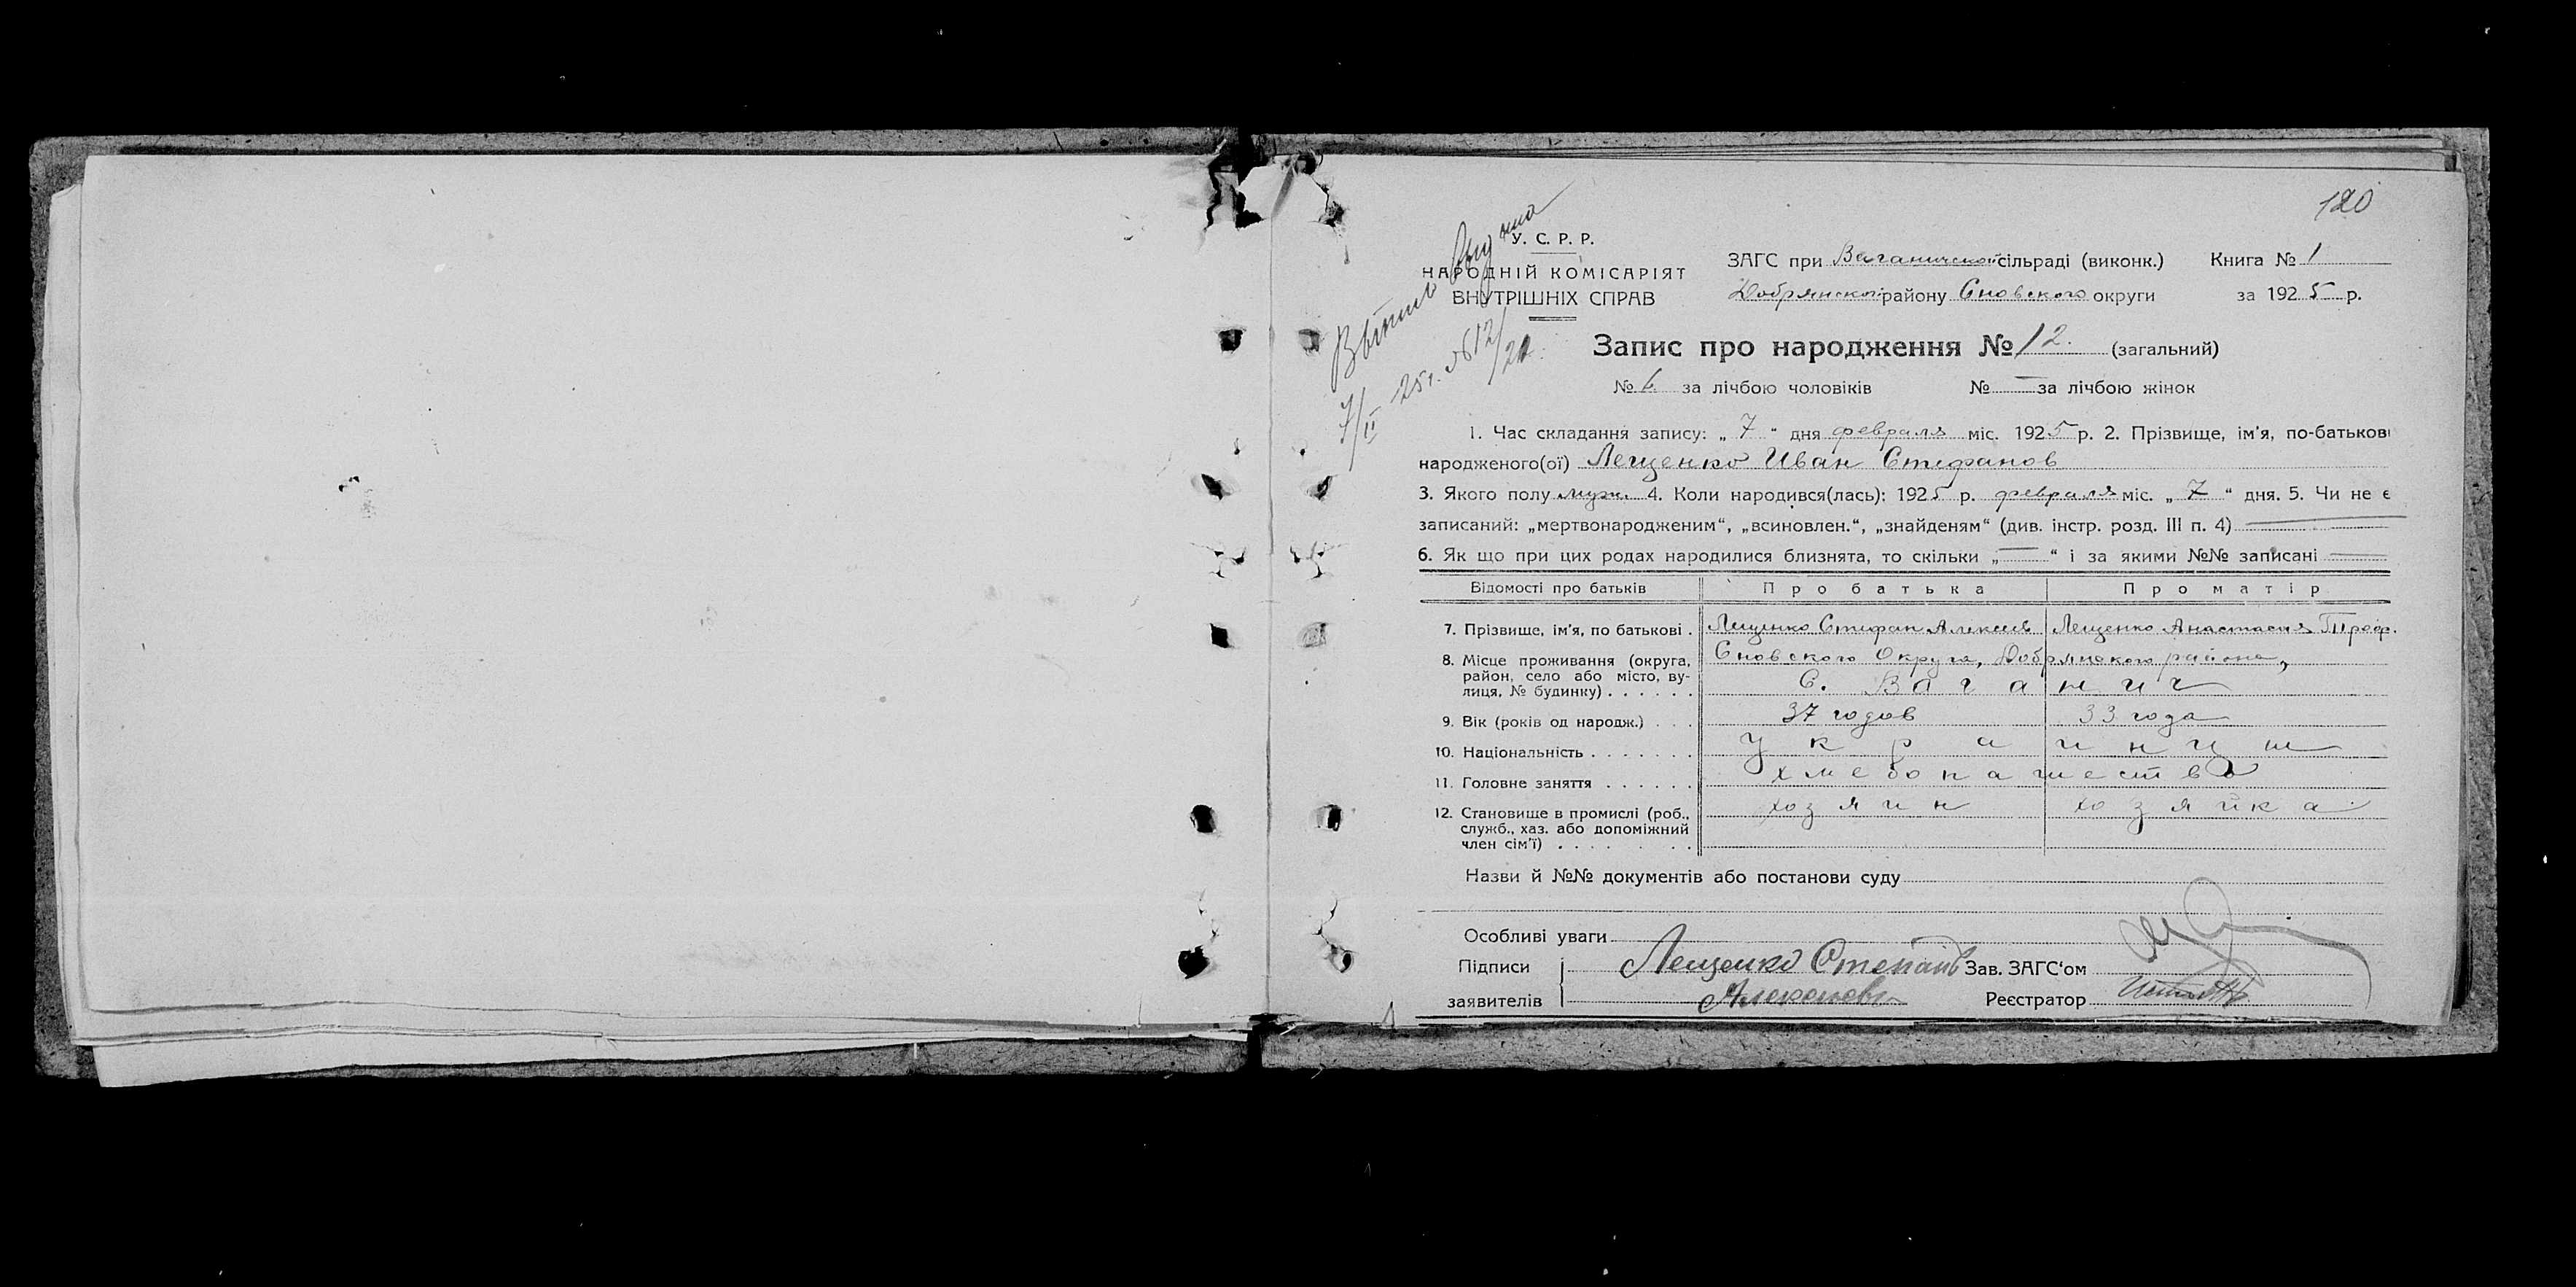 120
У. С. Р. Р.
НАРОДНІЙ КОМІСАРІЯТ
ВНУТРІШНІХ СПРАВ
7/II 25 г. №12/21
ЗАГС при Ваганичской сільраді (виконк.) Книга № 1
Добрянского району Сновского округи за 1925 р.
Запис про народження № 12. (загальний)
№ 6 за лічбою чоловіків № — за лічбою жінок
1. Час складання запису: „ 7 “ дня февраля міс. 1925 р. 2. Прізвище, ім'я, по-батькові
народженого(ої) Лещенко Иван Стефанов
3. Якого полу муж. 4. Коли народився(лась): 1925 р. февраля міс. „ 7 “ дня. 5. Чи не є
записаний: „мертвонародженим“, „всиновлен.“, „знайденям“ (див. інстр. розд. III п. 4) —
6. Як що при цих родах народилися близнята, то скільки „ — “ і за якими №№ записані —
Відомості про батьків Про батька Про матір
7. Прізвище, ім'я, по батькові . Лещенко Стефан Алексеев Лещенко Анастасия
8. Місце проживання (округа, Сновского Округа, Добрянского района,
район, село або місто, ву-
лиця, № будинку) . . . . . . С. Ваганич
9. Вік (років од народж.) . . . 37 годов 33 года
10. Національність . . . . . . . украинцы
11. Головне заняття . . . . . . хлебопашество
12. Становище в промислі (роб., хозяин хозяйка
служб., хаз. або допоміжний
член сім'ї) . . . . . . . .
Назви й №№ документів або постанови суду
Особливі уваги
Підписи Лещенко Степан Зав. ЗАГС‘ом
заявителів Реєстратор